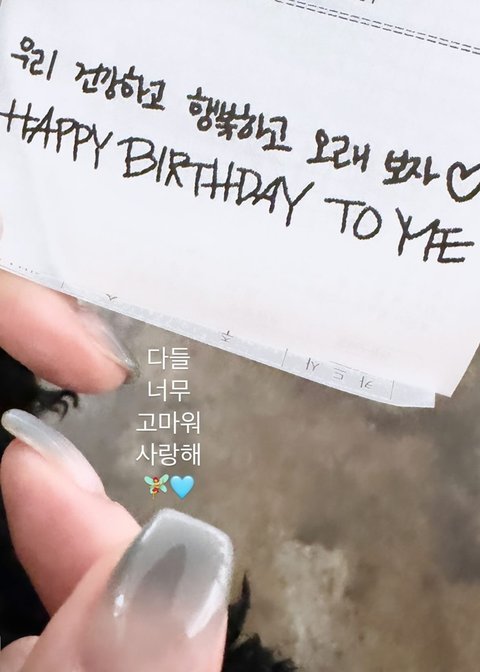 우리 건강하고 행복하고 오래 보자♡
HAPPY BIRTHDAY TO ME
다들
너무
고마워
사랑해
🧚🩵